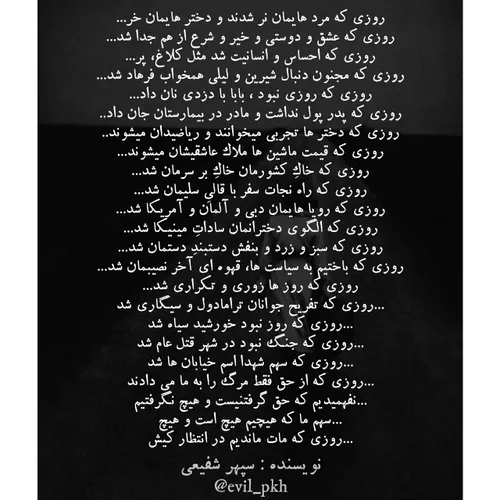 روزی که مرد هایمان نر شدند و دختر هایمان خر...
روزی که عشق و دوستی و خیر و شرع از هم جدا شد...
روزی که احساس و انسانیت شد مثل کلاغ، پر...
روزی که مجنون دنبال شیرین و لیلی همخواب فرهاد شد...
روزی که روزی نبود ، بابا با دزدی نان داد...
روزی که پدر پول نداشت و مادر در بیمارستان جان داد..
روزی که دختر ها تجربی میخوانند و ریاضیدان میشوند..
روزی که قیمت ماشین ها ملاک عاشقیشان میشوند...
روزی که خاک کشورمان خاک بر سرمان شد...
روزی که راه نجات سفر با قالی سلیمان شد...
روزی که رویا هایمان دبی و آلمان و آمریکا شد...
روزی که الگوی دخترانمان سادات مینیکا شد...
روزی که سبز و زرد و بنفش دستبند دستمان شد...
روزی که باختیم به سیاست ها، قهوه ای آخر نصیبمان شد...
روزی که روز ها زوری و تکراری شد...
...روزی که تفریح جوانان ترامادول و سیگاری شد
...روزی که روز نبود خورشید سیاه شد
...روزی که جنگ نبود در شهر قتل عام شد
...روزی که سهم شهدا اسم خیابان ها شد
...روزی که از حق فقط مرگ را به ما می دادند
...نفهمیدیم که حق گرفتنیست و هیچ نگرفتیم
...سهم ما که هیچیم هیچ است و هیچ
...روزی که مات ماندیم در انتظار کیش
نویسنده : سپهر شفیعی
@evil_pkh